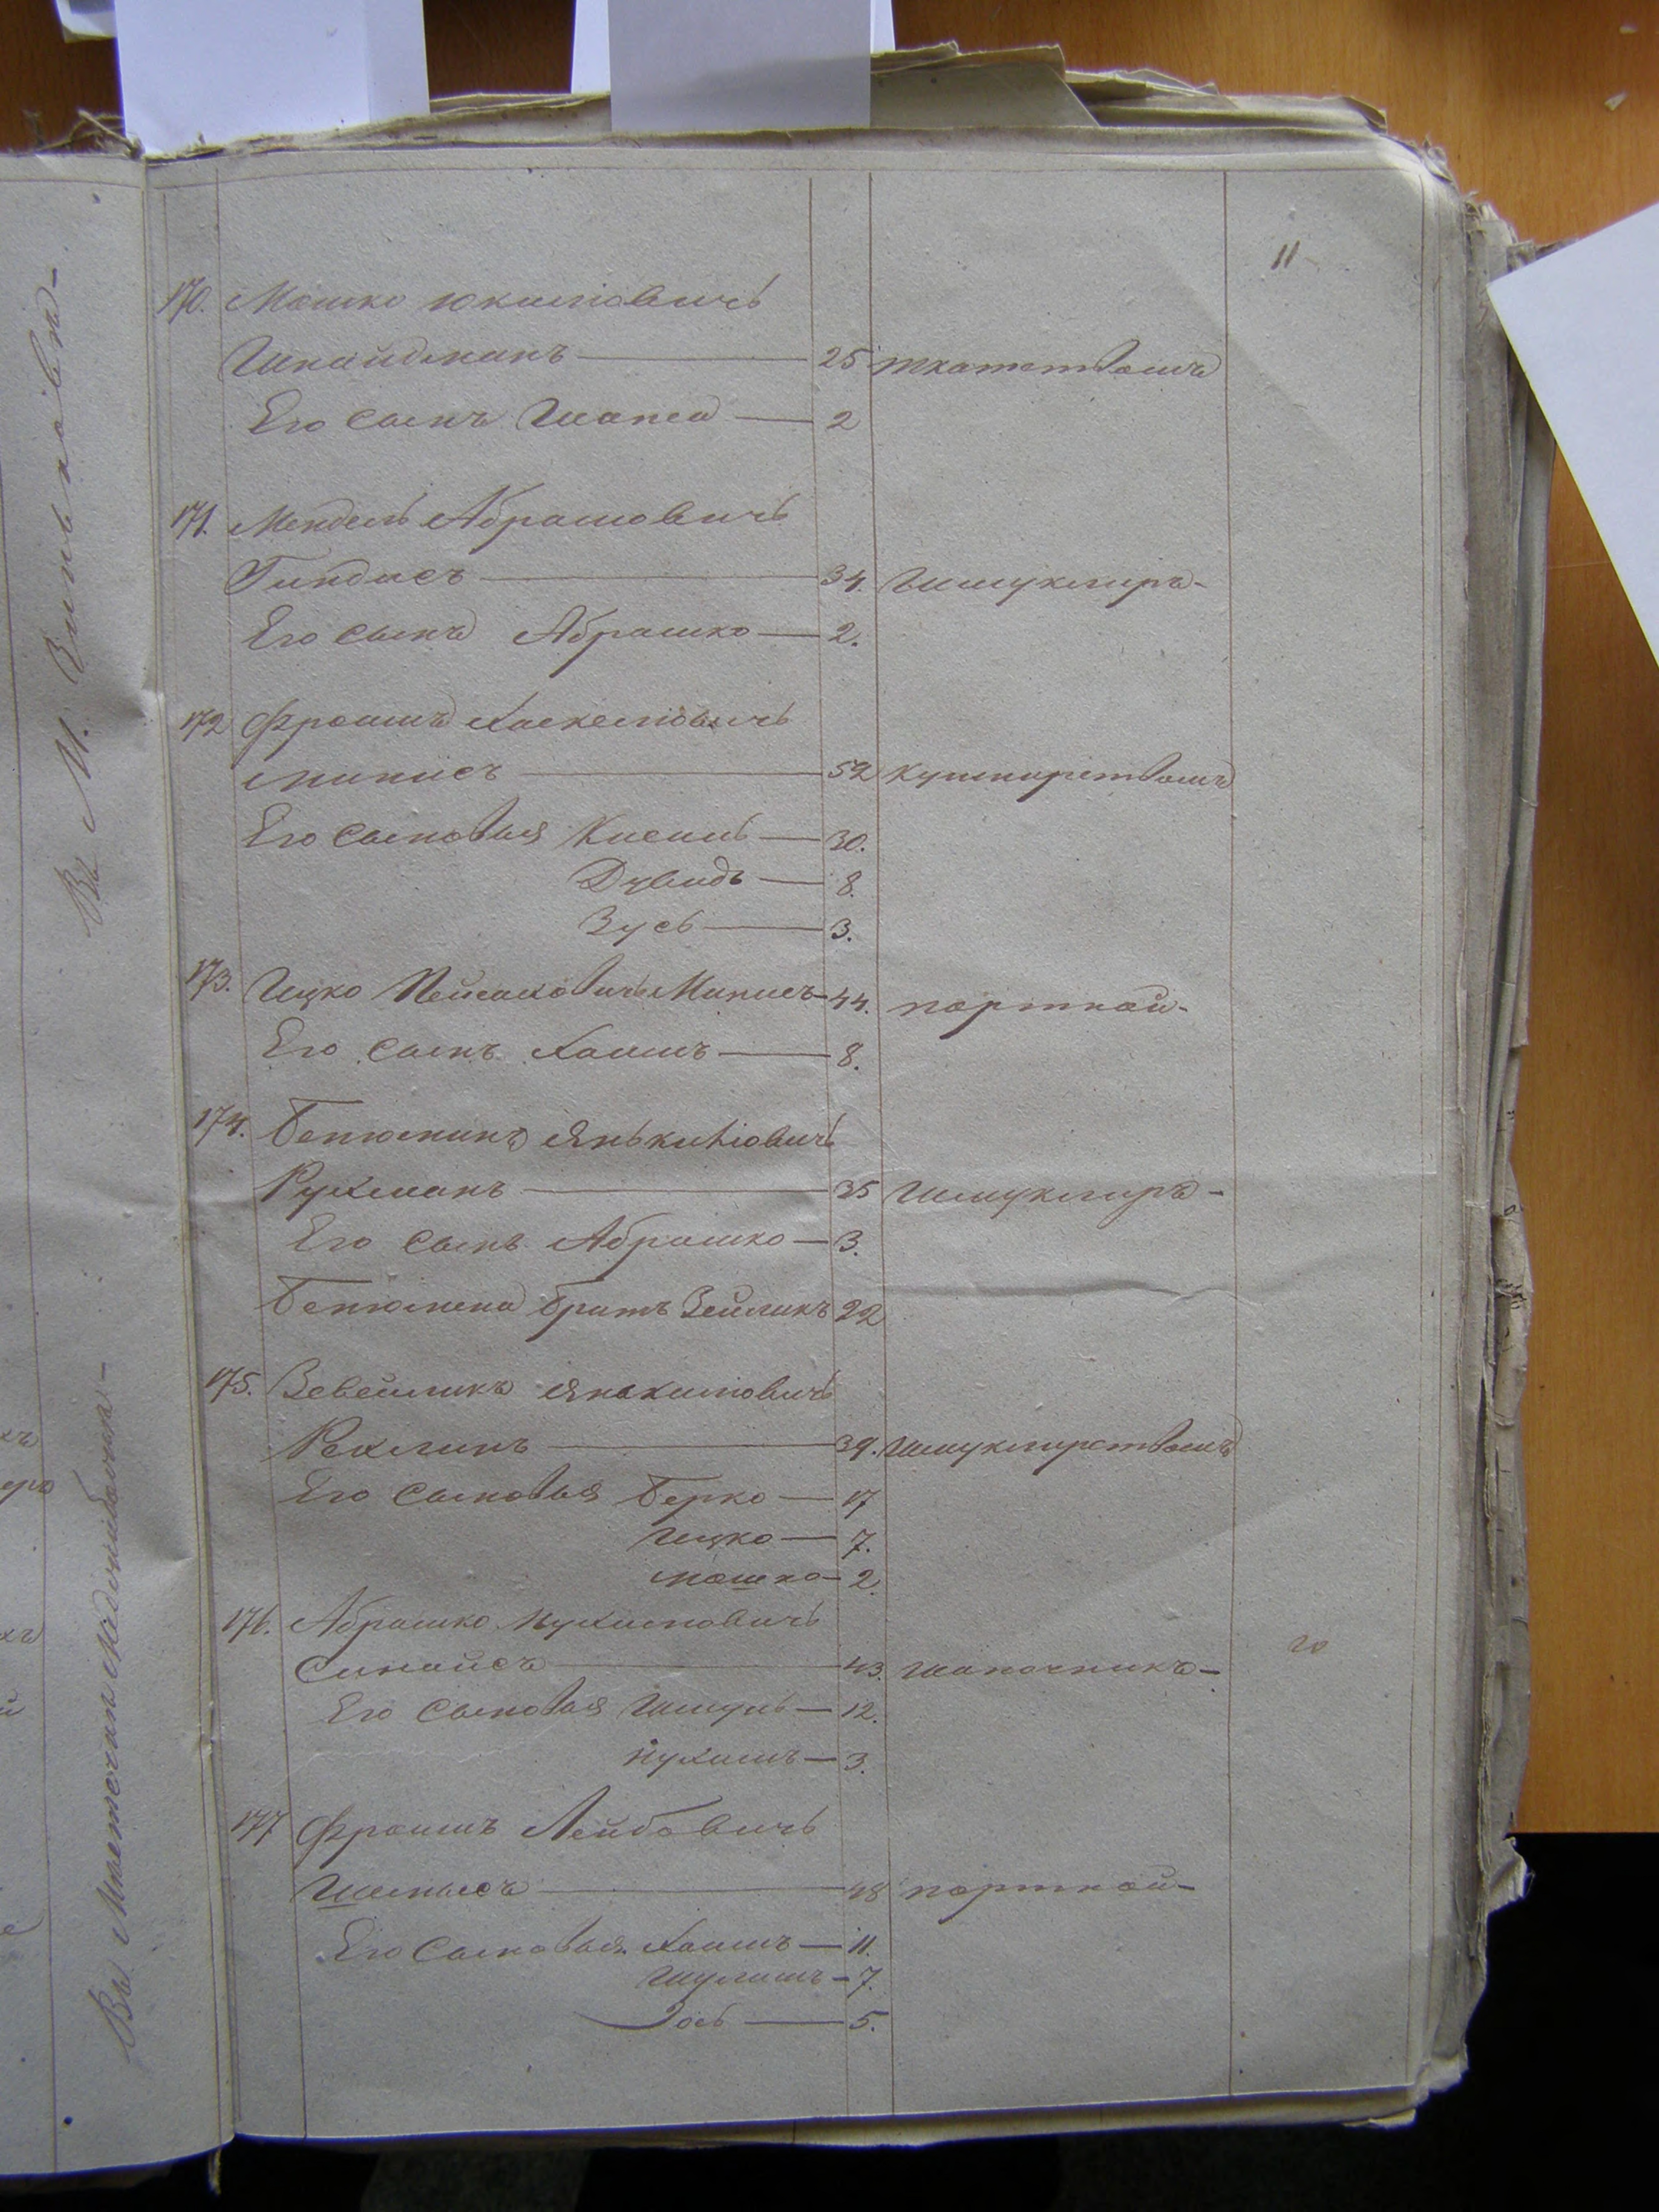 11
170. Мошко Юкилiовичъ
Шнайдманъ — 25 ткатствомъ
Его сынъ Шапса — 2
171. Мендель Абрамовичъ
Гиндисъ — 34. Шмуклиръ-
Его сынъ Абрашко — 2.
172 Фроимъ Хаскелiовичъ
Минисъ — 52 кушнирствомъ
Его сыновья Кисиль — 30.
Дувидъ — 8.
Зусь — 3.
173. Ицко Пейсаховичъ Минисъ — 44. портной-
Его сынъ Хаимъ — 8.
174. Бенюминъ Янькилiовичъ
Рухманъ — 35 Шмуклиръ-
Его сынъ Абрашко — 3.
Бенюмена братъ Зейликъ 22
175. Зевейликъ Янкилiовичъ
Рехлинъ — 39. Шмуклирствомъ
Его сыновья Берко — 17
Ицко — 7.
Мошко — 2.
176. Абрашко Нухимовичъ
Синайсъ — 43. шапочникъ-
20
Его сыновья Шмуль — 12.
Нухимъ — 3.
177 Фроимъ Лейбовичъ
— 48 портной-
Его сыновья Хаимъ — 11.
Шулимъ — 7.
— 5.
Въ М. Зиньковѣ-
Въ Мѣстечкѣ